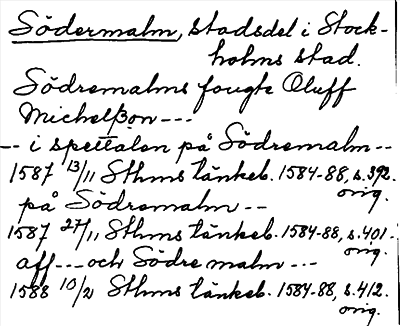 Södermalm, stadsdel i Stock-
holms stad.
Södremalms fougte Oluff
Michelßon ---
-- i spettalen på Södremalm --
1587 13/11 Sthms tänkeb. 1584-88, s. 392.
orig.
på Södremalm --
1587 27/11 Sthms tänkeb. 1584-88, s. 401.
orig.
aff --- och Södre malm ---
1588 10/2 Sthms tänkeb. 1584-88, s. 412.
orig.